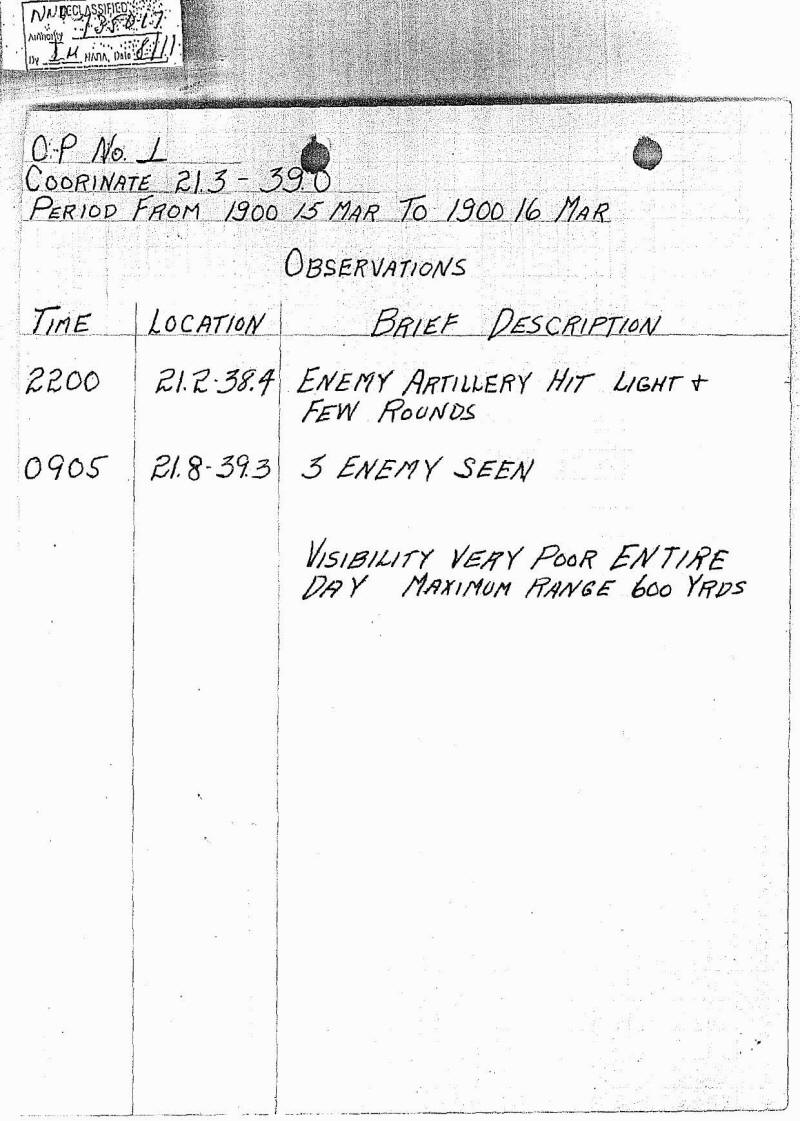 DECLASSIFIED
NND 735017
Authority
By IH NARA, Date 8/11
O.P No. 1
COORINATE 21.3 - 39.0
PERIOD FROM 1900 15 MAR TO 1900 16 MAR
OBSERVATIONS
TIME LOCATION BRIEF DESCRIPTION
2200 21.2-38.4 ENEMY ARTILLERY HIT LIGHT +
FEW ROUNDS
0905 21.8-39.3 3 ENEMY SEEN
VISIBILITY VERY POOR ENTIRE
DAY MAXIMUM RANGE 600 YRDS